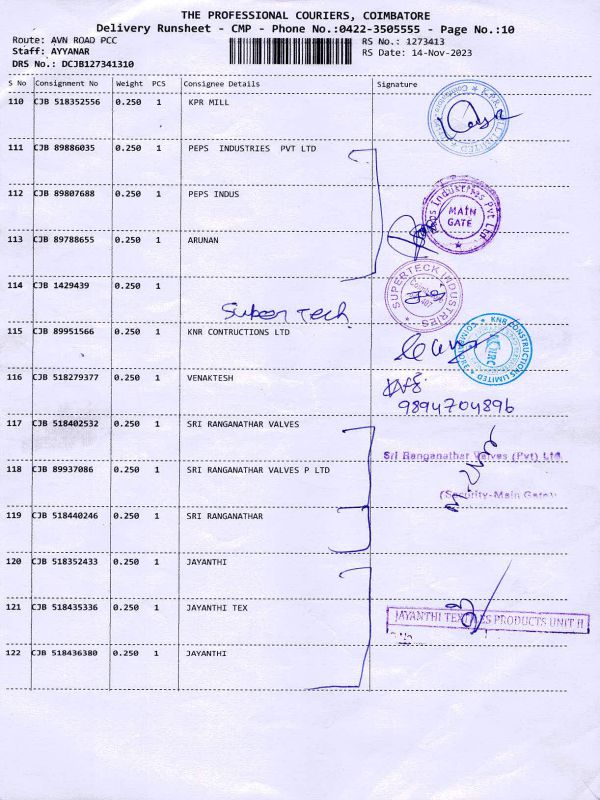 THE PROFESSIONAL COURIERS, COIMBATORE
Delivery Runsheet - CMP - Phone No.:0422-3505555 - Page No.:10
Route: AVN ROAD PCC RS No.: 1273413
Staff: AYYANAR RS Date: 14-Nov-2023
DRS No.: DCJB127341310
S No Consignment No Weight PCS Consignee Details Signature
110 CJB 518352556 0.250 1 KPR MILL
111 CJB 89886035 0.250 1 PEPS INDUSTRIES PVT LTD
112 CJB 89807688 0.250 1 PEPS INDUS
Peps Industries Pvt Ltd
MAIN
GATE
113 CJB 89788655 0.250 1 ARUNAN
114 CJB 1429439 0.250 1
SUPERTECK INDUSTRIES
Super Tech
115 CJB 89951566 0.250 1 KNR CONTRUCTIONS LTD
KNR CONSTRUCTIONS LIMITED
116 CJB 518279377 0.250 1 VENAKTESH
9894704896
117 CJB 518402532 0.250 1 SRI RANGANATHAR VALVES
Sri Ranganathar Valves (Pvt) Ltd.
118 CJB 89937086 0.250 1 SRI RANGANATHAR VALVES P LTD
(Security-Main Gate)
119 CJB 518440246 0.250 1 SRI RANGANATHAR
120 CJB 518352433 0.250 1 JAYANTHI
121 CJB 518435336 0.250 1 JAYANTHI TEX
JAYANTHI TEXTILES PRODUCTS UNIT II
122 CJB 518436380 0.250 1 JAYANTHI